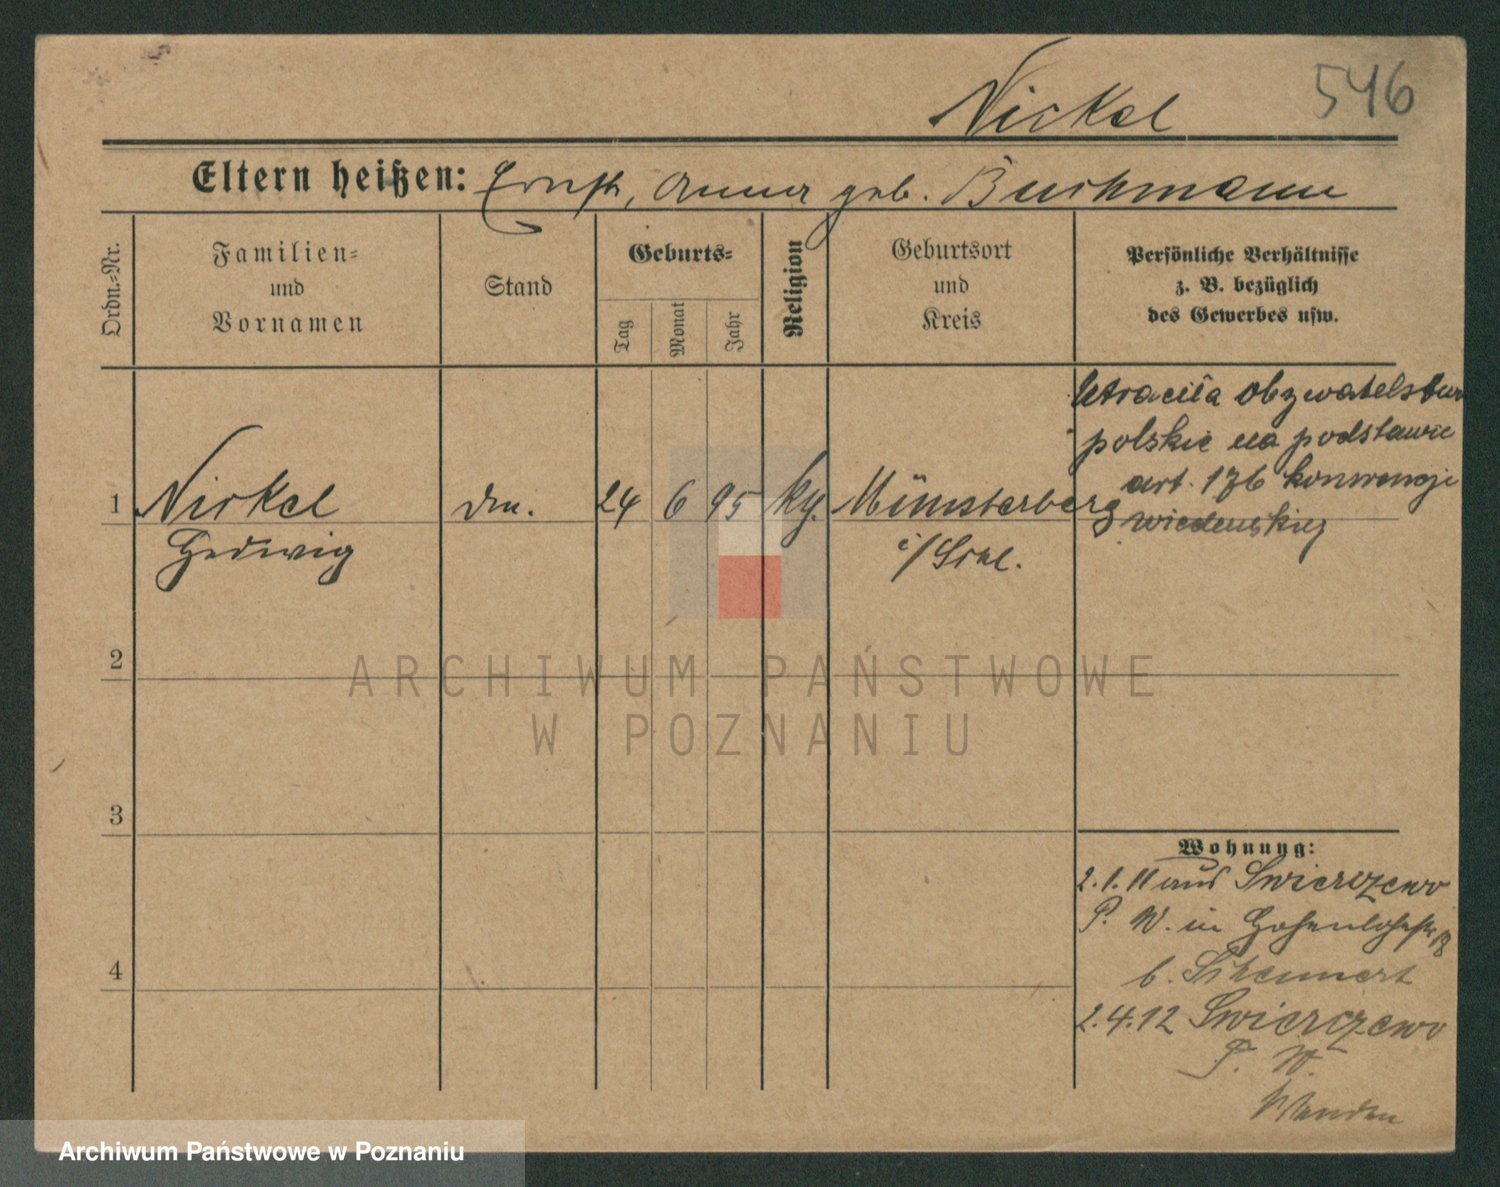 Nickel
546
Eltern heißen: Ernst, Anna geb. Buchmann
Ordn.-Nr.
Familien-
und
Vornamen
Stand
Geburts-
Tag
Monat
Jahr
Religion
Geburtsort
und
Kreis
Persönliche Verhältnisse
z. B. bezüglich
des Gewerbes usw.
Utraciła obywatelstwo
polskie na podstawie
art. 176 konwencji
wiedeńskiej
1 Nickel 24 6 95 Münsterberg
Hedwig
i/Schl.
2
3
4
Wohnung:
2.1.11 aus Swierczewo
P. W. in Hohenlohestr
b.
2.4.12 Swierczewo
P. W.
ARCHIWUM PAŃSTWOWE
W POZNANIU
Archiwum Państwowe w Poznaniu